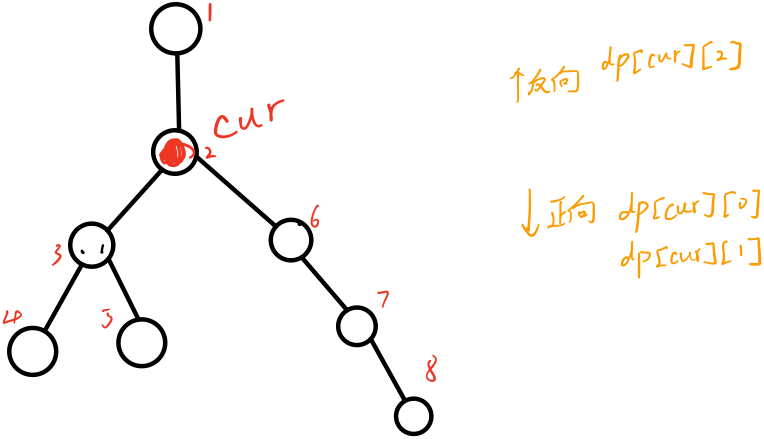 1
cur
2
3
6
4
5
7
8
↑反向 dp[cur][2]
↓正向 dp[cur][0]
dp[cur][1]